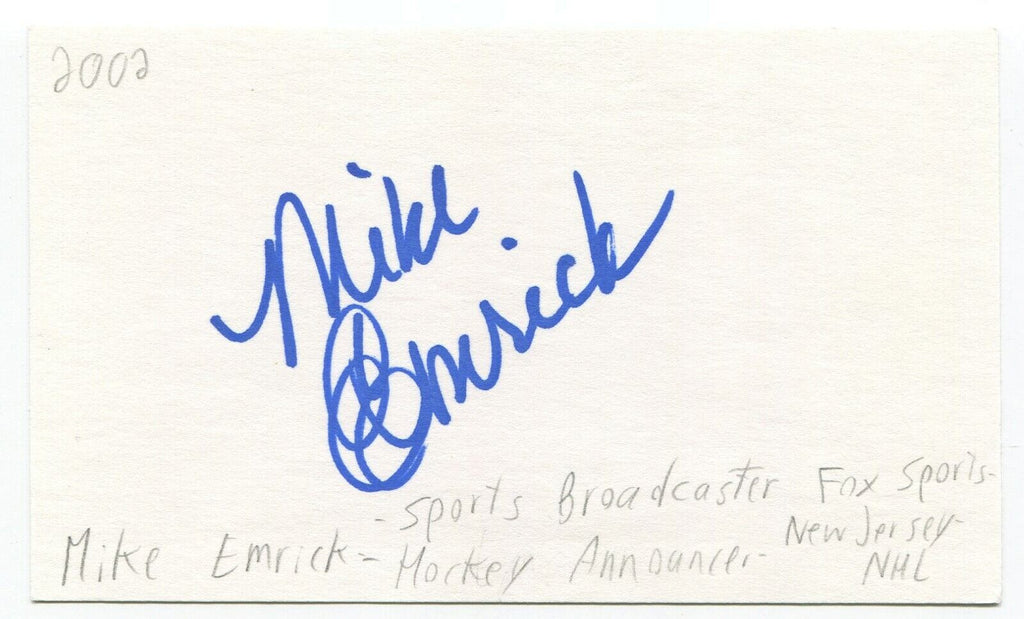 2002
Mike
Emrick
- Sports Broadcaster Fox Sports-
Mike Emrick - Hockey Announcer - New Jersey-
NHL